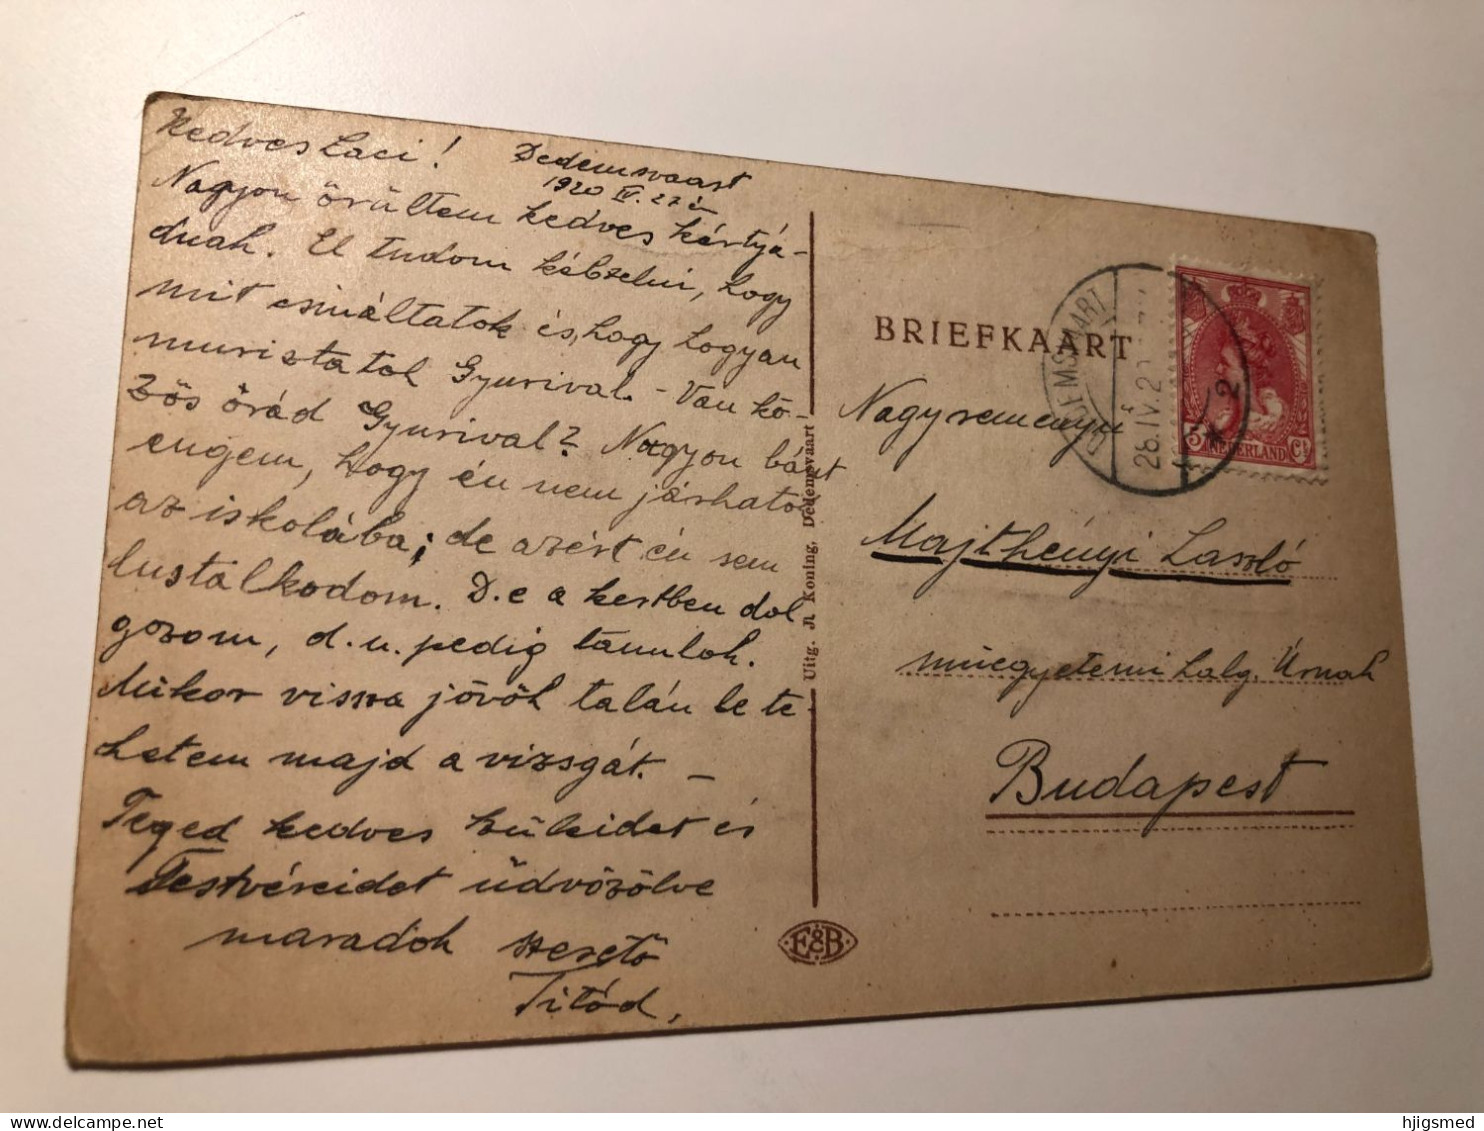 Kedves Laci!
Dedemsvaart
1920 IV. 27 én
Nagyon örültem kedves kártyá-
dnak. El tudom képzelni, hogy
mit csináltatok és, hogy hogyan
muristatok Gyurival. - Van kö-
zös órád Gyurival? Nagyon bánt
engem, hogy én nem járhatok
az iskolába; de azért én sem
lustálkodom. D.e a kertben dol
gozom, d.u. pedig tanulok.
Mikor vissza jövök talán le te-
hetem majd a vizsgát. -
Téged kedves szüleidet és
Testvéreidet üdvözölve
maradok szerető
Titód.
Uitg. J. Koning, Dedemsvaart
E&B
BRIEFKAART
DEDEMSVAART
28.IV.20
2
5 NEDERLAND Ct
Nagyreményű
Majthényi László
műegyetemi halg. Úrnak
Budapest
hjigsmed